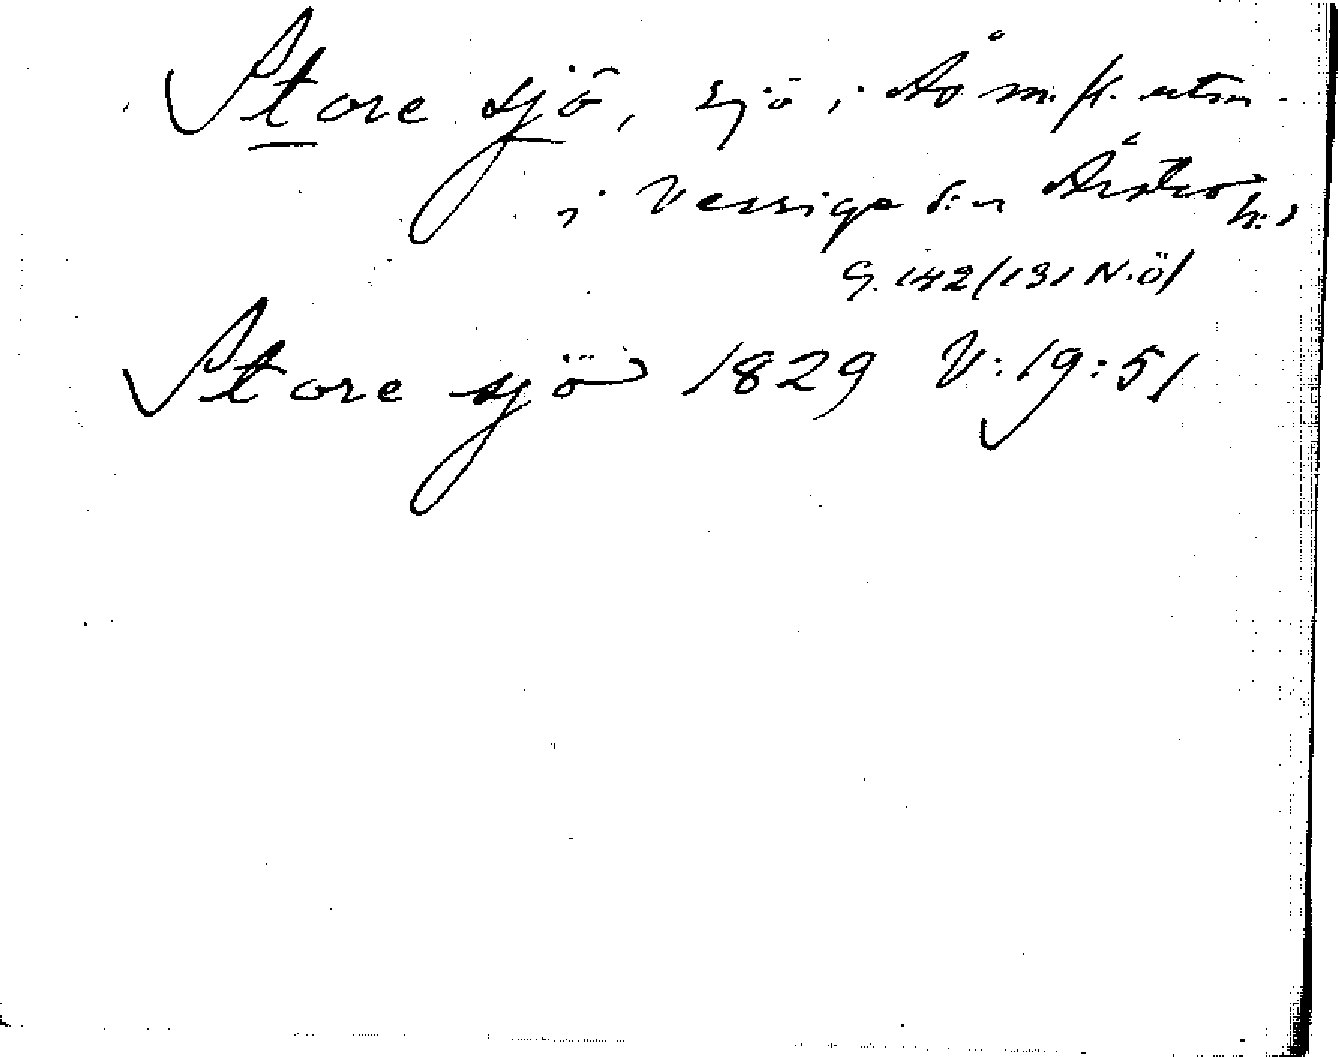 Store sjö, sjö i Ås m.fl. utm.
i Vessige s:n Årstad h:d
G. 142/131 N.ö/
Store sjö 1829 V:19:51